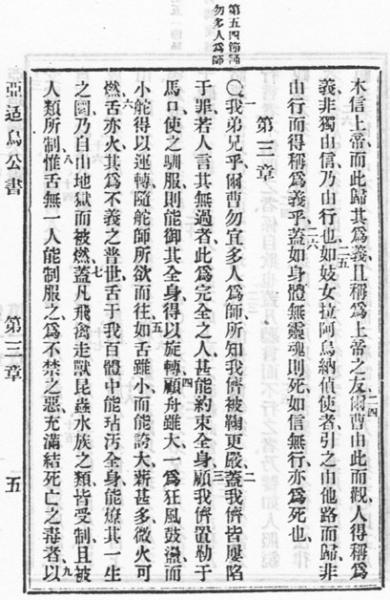 第五四節誦
勿多人爲師
木信上帝而此歸其爲義且稱爲上帝之友爾曹由此而觀人得稱爲
義非獨由信乃由行也如妓女拉阿烏納偵使者引之由他路而歸非
由行而得稱爲義乎蓋如身體無靈魂則死如信無行亦爲死也
第三章
〇我弟兄乎爾曹勿宜多人爲師所知我儕被鞫更嚴蓋我儕皆屢陷
于罪若人言其無過者此爲完全之人甚能約束全身顧我儕置勒于
馬口使之馴服則能御其全身得以旋轉顧舟雖大一爲狂風鼓盪而
小舵得以運轉隨舵師所欲而往如舌雖小而能誇大薪甚多微火可
燃舌亦火其爲不義之普世舌于我百體中能玷污全身能燎其一生
之圜乃自由地獄而被燃蓋凡飛禽走獸昆蟲水族之類皆受制且被
人類所制惟舌無一人能制服之爲不禁之惡充滿結死亡之毒者以
亞适烏公書
第三章
五
二四
二五
二六
一
二
三
四
五
六
七
八
九